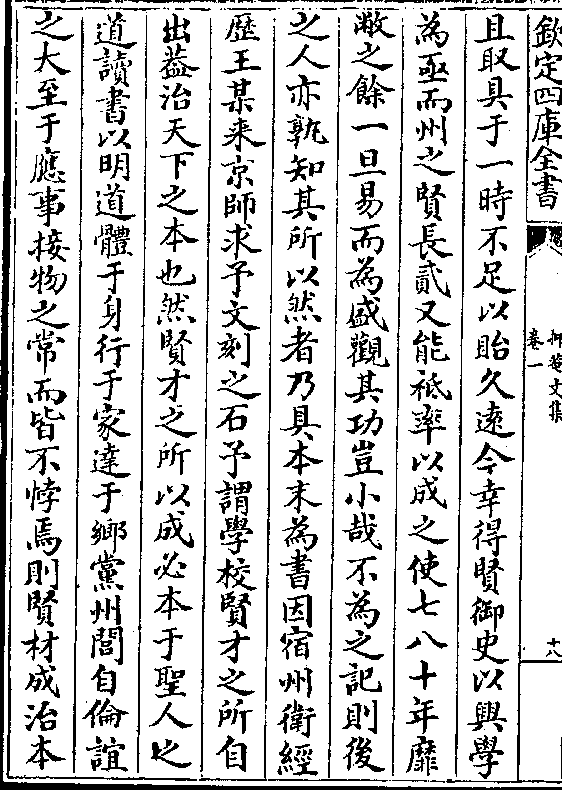 欽定四庫全書
抑菴文集
卷一
十八
且取具于一時不足以貽久逺今幸得賢御史以興學
為亟而州之賢長貳又能祗率以成之使七八十年靡
敝之餘一旦易而為盛觀其功豈小哉不為之記則後
之人亦孰知其所以然者乃具本末為書因宿州衛經
歴王某來京師求予文刻之石予謂學校賢才之所自
出葢治天下之本也然賢才之所以成必本于聖人之
道讀書以明道體于身行于家達于鄉黨州閭自倫誼
之大至于應事接物之常而皆不悖焉則賢材成治本